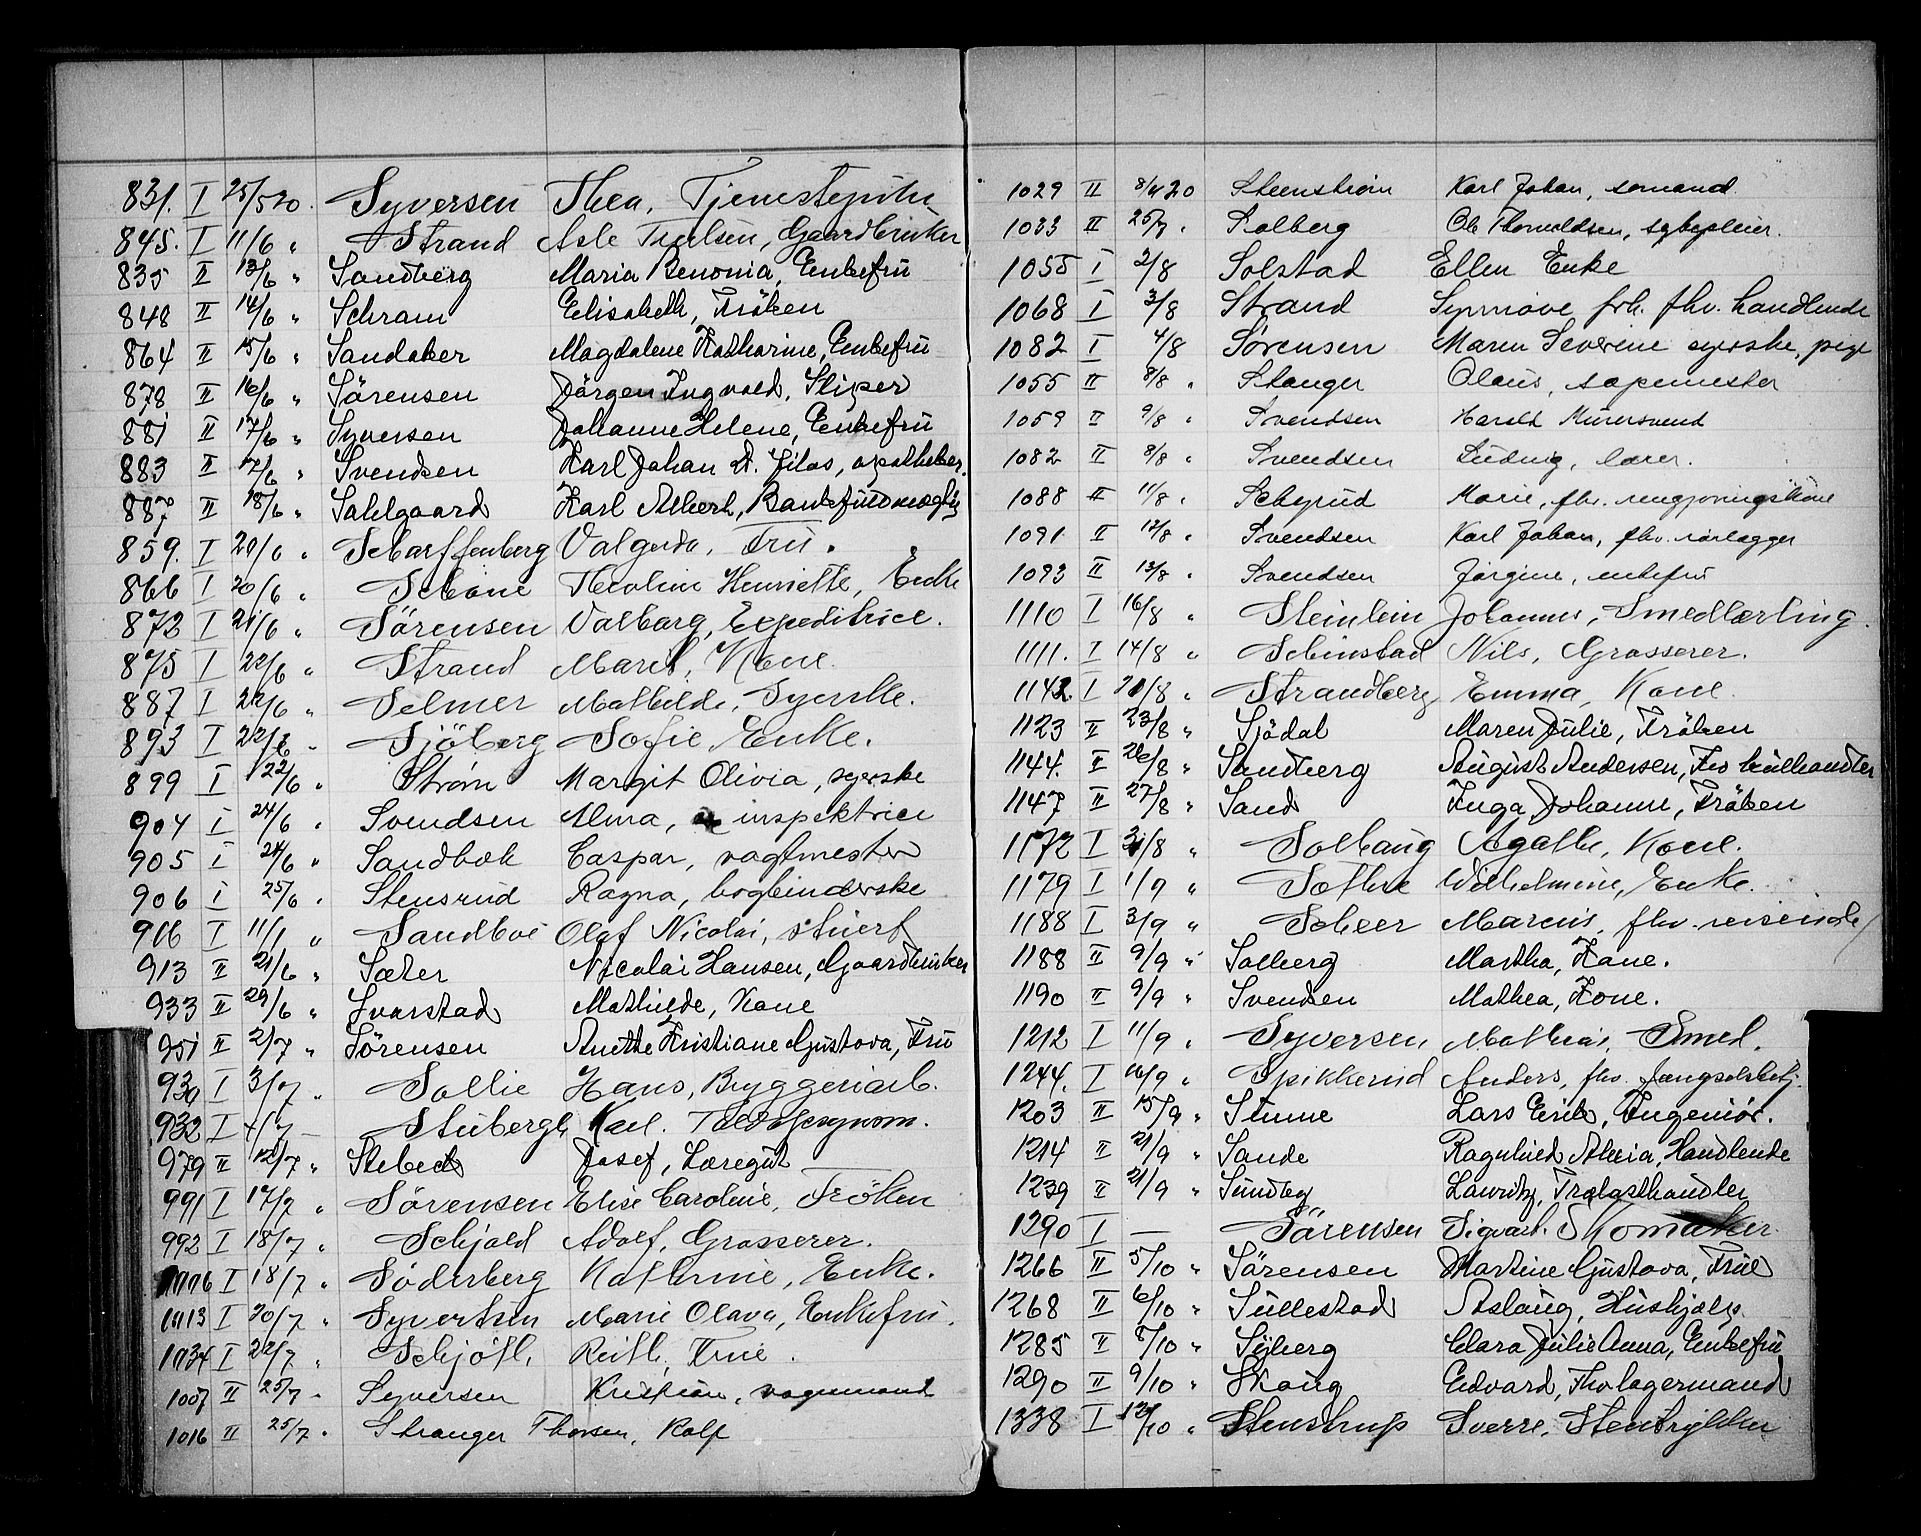 831. I 25/5 20. Syversen Thea, Tjenestepike
845. I 11/6 " Strand Asle Truelsen, Gaardbruker
835 II 13/6 " Sandberg Maria Benonia, Enkefru
848 II 14/6 " Schram Elisabeth, Fröken
864 II 15/6 " Sandaker Magdalene Katharine, Enkefru
878 II 16/6 " Sörensen Jörgen Ingvald, Sliper
881 II 17/6 " Syversen Johanne Helene, Enkefru
883 II 17/6 " Svendsen Karl Johan A. Filos, apotheker.
887 II 18/6 " Sahlgaard Karl Albert, Bankfuldmægtig
859. I 20/6 " Scharffenberg Valgerda, Fru.
866 I 20/6 " Schöne Theoline Henriette, Enke
872 I 21/6 " Sörensen Valborg, Expeditrice.
875 I 22/6 " Strand Marit, Kone.
887 I 22/6 " Selmer Mathilde, Syerske.
893 I 22/6 " Sjöberg Sofie, Enke.
899 I 22/6 " Strøm Margit Olivia, syerske
904 I 24/6 " Svendsen Alma, inspektrice
905 I 24/6 " Sandbæk Caspar, vagtmester
906 I 25/6 " Stensrud Ragna, bogbinderske
916 I 11/1 " Sandboe Olaf Nicolai, stuert
913 II 21/6 " Sæter Nicolai Hansen, Gaardbruker
933 II 29/6 " Svarstad Mathilde, Kone
951 II 2/7 " Sörensen Anette Kristiane Gustava, Fru
930 I 3/7 " Sollie Hans, Bryggeriarb.
932 I 4/7 — Stubergh, Karl. Toldofs
979 II 12/7 " Stebed Josef, Læregut
991 I 17/7 " Sörensen Elise Caroline, Fröken
992 I 18/7 " Schjöld Adolf, Grosserer.
1006 I 18/7 " Söderberg Kathrine, Enke.
1013 I 20/7 " Syvertsen Marie Olava, Enkefru.
1034 I 22/7 " Schjöth, Ruth, Frue.
1007 II 25/7 " Syversen Kristian, vognmand
1016 II 25/7 " Stranger Thorsen, Rolf
1029 II 8/4 20 Steenstrøm Karl Johan, sømand
1033 II 25/7 " Solberg Ole Thorvaldsen, sykepleier.
1055 I 2/8 Solstad Ellen Enke
1068 I 3/8 Strand Synnøve frk. fhv. handlende
1082 I 4/8 Sørensen Maren Severine syerske, pige
1055 II 8/8 " Stanger Olaus, sæpemester
1059 II 9/8 " Svendsen Harald Murersvend
1082 II 8/8 " Svendsen Ludvig, lærer.
1088 II 11/8 " Schyrud Marie, fhv. rengjøringskone
1091 II 12/8 " Svendsen Karl Johan, fhv. rørlægger
1093 II 13/8 " Svendsen Jørgine, enkefru
1110 I 16/8 " Steinlein Johannes, Smedlærling.
1111. I 14/8 " Schinstad Nils, Grosserer.
1142. I 20/8 " Strandberg Emma, Kone.
1123 II 23/8 " Sjödal Maren Julie, Fröken
1144. II 26/8 " Sandberg August Andersen, Fhv kulhandler
1147 II 27/8 " Sand Inga Johanne, Fröken
1172 I 31/8 " Solhaug Agathe, Kone.
1179 I 1/9 " Söthre Wilhelmine, Enke.
1188 I 3/9 " Scheer Marcus, fhv. reisende
1188 II 9/9 " Solberg Martha, Kone.
1190 II 9/9 " Svendsen Mathea, Kone.
1212 I 11/9 " Syversen Mathias, Smed.
1244. I 16/9 " Spikkerud Anders, fhv. fængselsbetj.
1203 II 15/9 " Stunne Lars Erik, Ingeniör.
1214 II 21/9 " Sande Ragnhild Alexia, Handlende
1239 II 21/9 " Sundby Lauritz, Trælasthandler
1290 I — Sörensen Sigvart. Skomaker
1266 II 5/10 " Sörensen Martine Gustava, Frue
1268 II 6/10 " Sullestad Aslaug, Hushjælp
1285 II 8/10 " Sjberg Clara Julie Anna, Enkefru
1290 II 9/10 " Skaug Edvard, Fhv lagermand
1338 I 12/10 " Stenstrup Sverre, Stentrykker